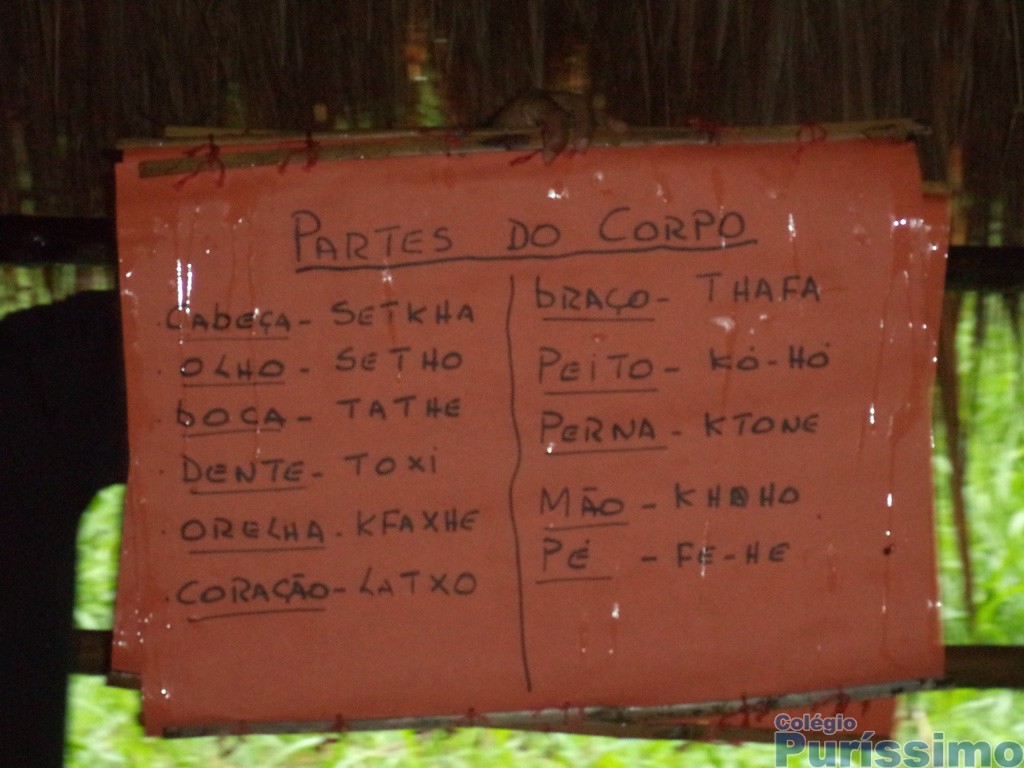 PARTES DO CORPO
CABEÇA - SETKHA
OLHO - SETHO
BOCA - TATHE
DENTE - TOXI
ORELHA - KFAXHE
CORAÇÃO - LATXO
BRAÇO - THAFA
PEITO - KÓ-HÓ
PERNA - KTONE
MÃO - KHOHO
PÉ - FE-HE
Colégio
Puríssimo